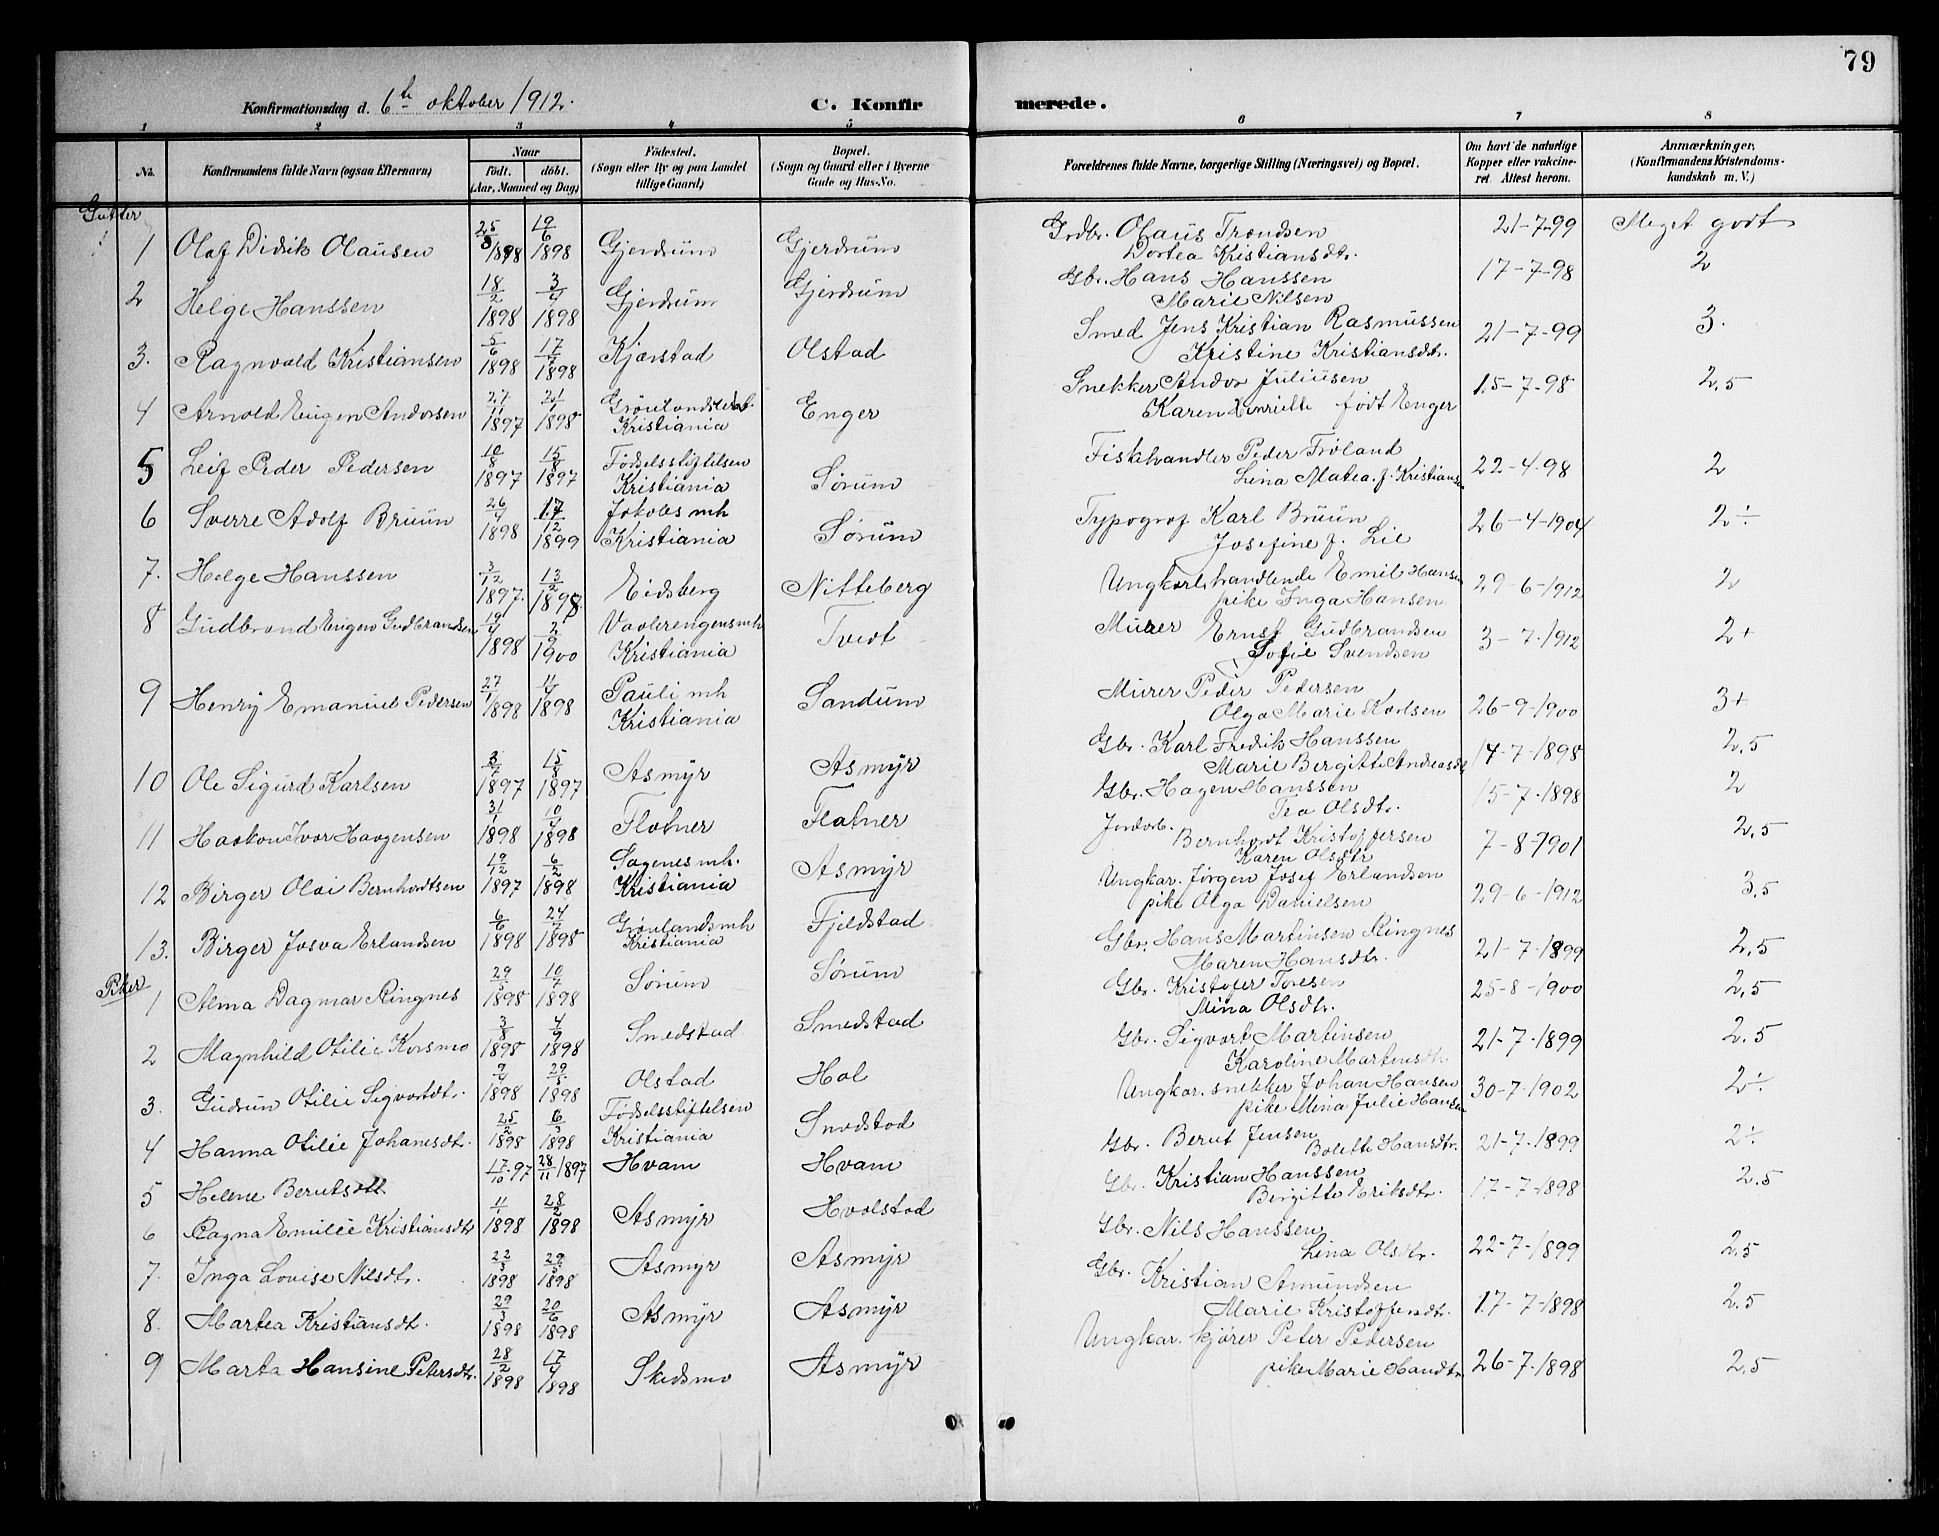 79
Konfirmationsdag d. 6te oktober 1912.
C. Konfirmerede.
1 2 3 4 5 6 7 8
No. Konfirmandens fulde Navn (ogsaa Efternavn) Naar født. døbt. (Aar, Maaned og Dag) Fødested. (Sogn eller By og paa Landet tillige Gaard) Bopæl. (Sogn og Gaard eller i Byerne Gade og Hus-No. Forældrenes fulde Navne, borgerlige Stilling (Næringsvei) og Bopæl. Om havt de naturlige Kopper eller vakcineret. Attest herom. Anmærkninger, (Konfirmandens Kristendomskundskab m. V.)
Gutter
1 Olaf Didrik Olausen 25/3 1898 19/6 1898 Gjerdrum Gjerdrum Grdbr. Olaus Trondsen Dortea Kristiansdtr. 21-7-99 Meget godt
2 Helge Hanssen 18/2 1898 3/4 1898 Gjerdrum Gjerdrum Gbr. Hans Hanssen Marie Nilsen 17-7-98 2
3. Ragnvald Kristiansen 5/6 1898 17/7 1898 Kjærstad Olstad Smed Jens Kristian Rasmussen Kristine Kristiansdtr. 21-7-99 3.
4 Arnold Eugen Andorsen 27/11 1897 21/1 1898 Kristiania Enger Snekker Andor Juliusen Karen Henriette født Enger 15-7-98 2,5
5 Leif Peder Pedersen 10/8 1897 15/8 1897 Fødselsstiftelsen Kristiania Sørum Fiskhandler Peder Frøland Lina Matea f. Kristians 22-4-98 2
6 Sverre Adolf Bruun 26/4 1898 17/12 1899 Jakobs mh Kristiania Sørum Typograf Karl Bruun Josefine f. Lie 26-4-1904 2÷
7. Helge Hanssen 3/12 1897. 13/2 1898 Eidsberg Nitteberg Ungkarl handlende Emil Hansen pike Inga Hansen 29-6-1912 2
8 Gudbrand Eugen Gudbrandsen 19/4 1898 2/9 1900 Vaalerengens mh Kristiania Tvedt Murer Ernst Gudbrandsen Sofie Svendsen 3-7-1912 2+
9 Henry Emanuel Pedersen 27/1 1898 11/4 1898 Pauli mh Kristiania Sandum Murer Peder Pedersen Olga Marie Karlsen 26-9-1900 3+
10 Ole Sigurd Karlsen 3/7 1897 15/8 1897 Asmyr Asmyr Gbr. Karl Fredrik Hanssen Marie Bergitte Andreasdtr 14-7-1898 2,5
11 Haakon Ivar Haagensen 31/1 1898 10/4 1898 Flatner Flatner Gbr. Hagen Hanssen Tea Olsdtr. 15-7-1898 2
12 Birger Olai Bernhardtsen 19/12 1897 6/2 1898 Sagenes mh. Kristiania Asmyr Jordarb. Bernhardt Kristoffersen Karen Olsdtr 7-8-1901 2,5
13. Birger Josva Erlandsen 6/6 1898 24/7 1898 Grønlands mh Kristiania Fjeldstad Ungkar. Jørgen Josef Erlandsen pike Olga Danielsen 29-6-1912 3,5
Piker
1 Alma Dagmar Ringnes 29/5 1898 10/7 1898 Sørum Sørum Gbr. Hans Martinsen Ringnes Maren Hansdtr. 21-7-1899 2,5
2 Magnhild Otilie Korsmo 3/8 1898 4/9 1898 Smedstad Smedstad Gbr. Kristofer Toresen Mina Olsdtr. 25-8-1900 2,5
3. Gudrun Otilie Sigvartdtr. 9/4 1898 29/5 1898 Olstad Hol Gbr. Sigvart Martinsen Karoline Martinsdtr. 21-7-1899 2,5
4 Hanna Otilie Johansdtr. 25/2 1898 6/3 1898 Fødselsstiftelsen Kristiania Smedstad Ungkar. snekker Johan Hansen pike Mina Julie Hansen 30-7-1902 2÷
5 Helene Berntsdtr 17/10 97 28/11 1897 Hvam Hvam Gbr. Bernt Jensen Bolette Hansdtr. 21-7-1899 2÷
6 Ragna Emilie Kristiansdtr 11/1 1898 28/2 1898 Asmyr Hvalstad Gbr. Kristian Hanssen Bergitte Eriksdtr. 17-7-1898 2,5
7. Inga Lovise Nilsdtr. 22/3 1898 29/5 1898 Asmyr Asmyr Gbr. Nils Hanssen Lina Olsdtr. 22-7-1899 2,5
8. Martea Kristiansdt. 29/3 1898 20/6 1898 Asmyr Asmyr Gbr. Kristian Amundsen Marie Kristoffersdtr. 17-7-1898 2,5
9 Marta Hansine Petersdtr. 28/2 1898 17/4 1898 Skedsmo Asmyr Ungkar. kjører Peter Pedersen pike Marie Hansdtr 26-7-1898 2,5